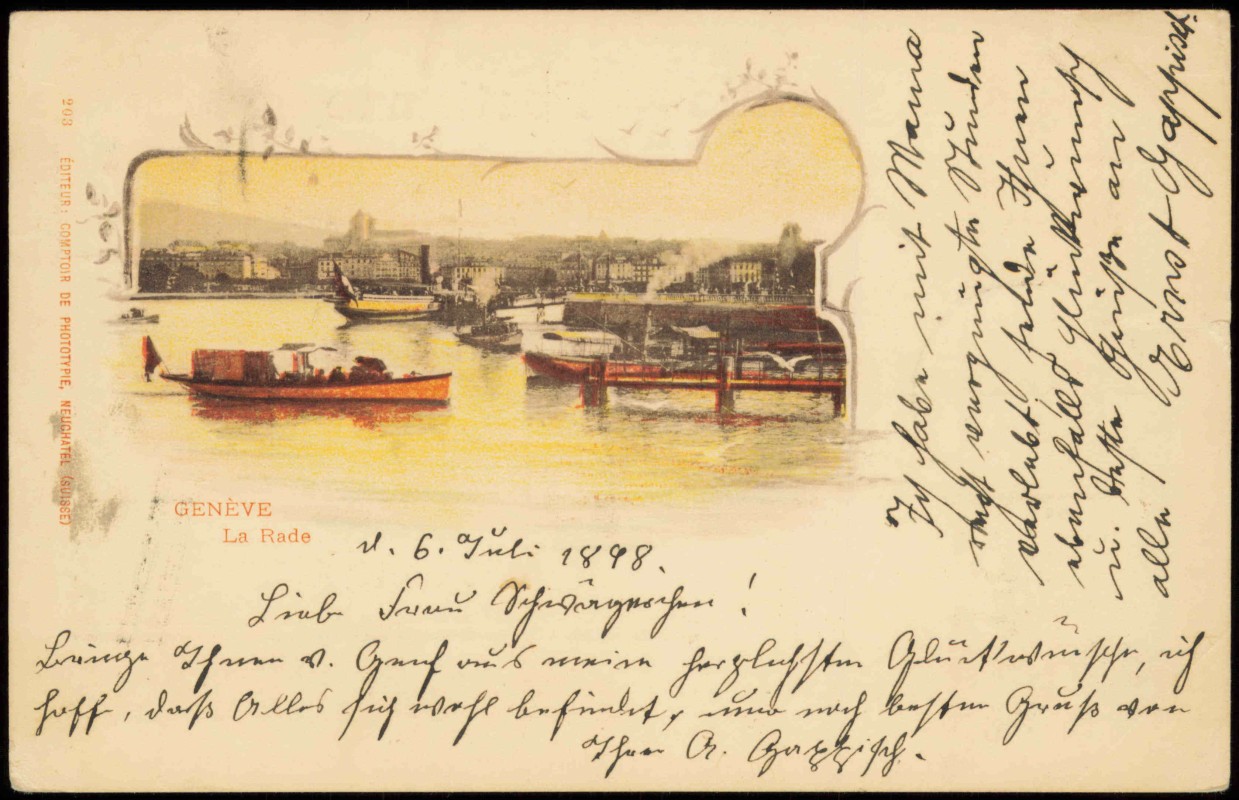 203 ÉDITEUR: COMPTOIR DE PHOTOTYPIE, NEUCHATEL (SUISSE)
GENÈVE
La Rade
d. 6. Juli 1898.
Liebe Frau Schwägerchen!
Bringe Ihnen v. Genf aus meine herzlichsten Glückwünsche, ich
hoffe, daß Alles sich wohl befindet, und noch besten Gruß von
Ihrer A. Gappisch.
Ich habe mit Mama
sehr vergnügte Stunden
verlebt, sende Ihnen
ebenfalls Glückwunsch
u. beste Grüße an
alle Ernst Gappisch.